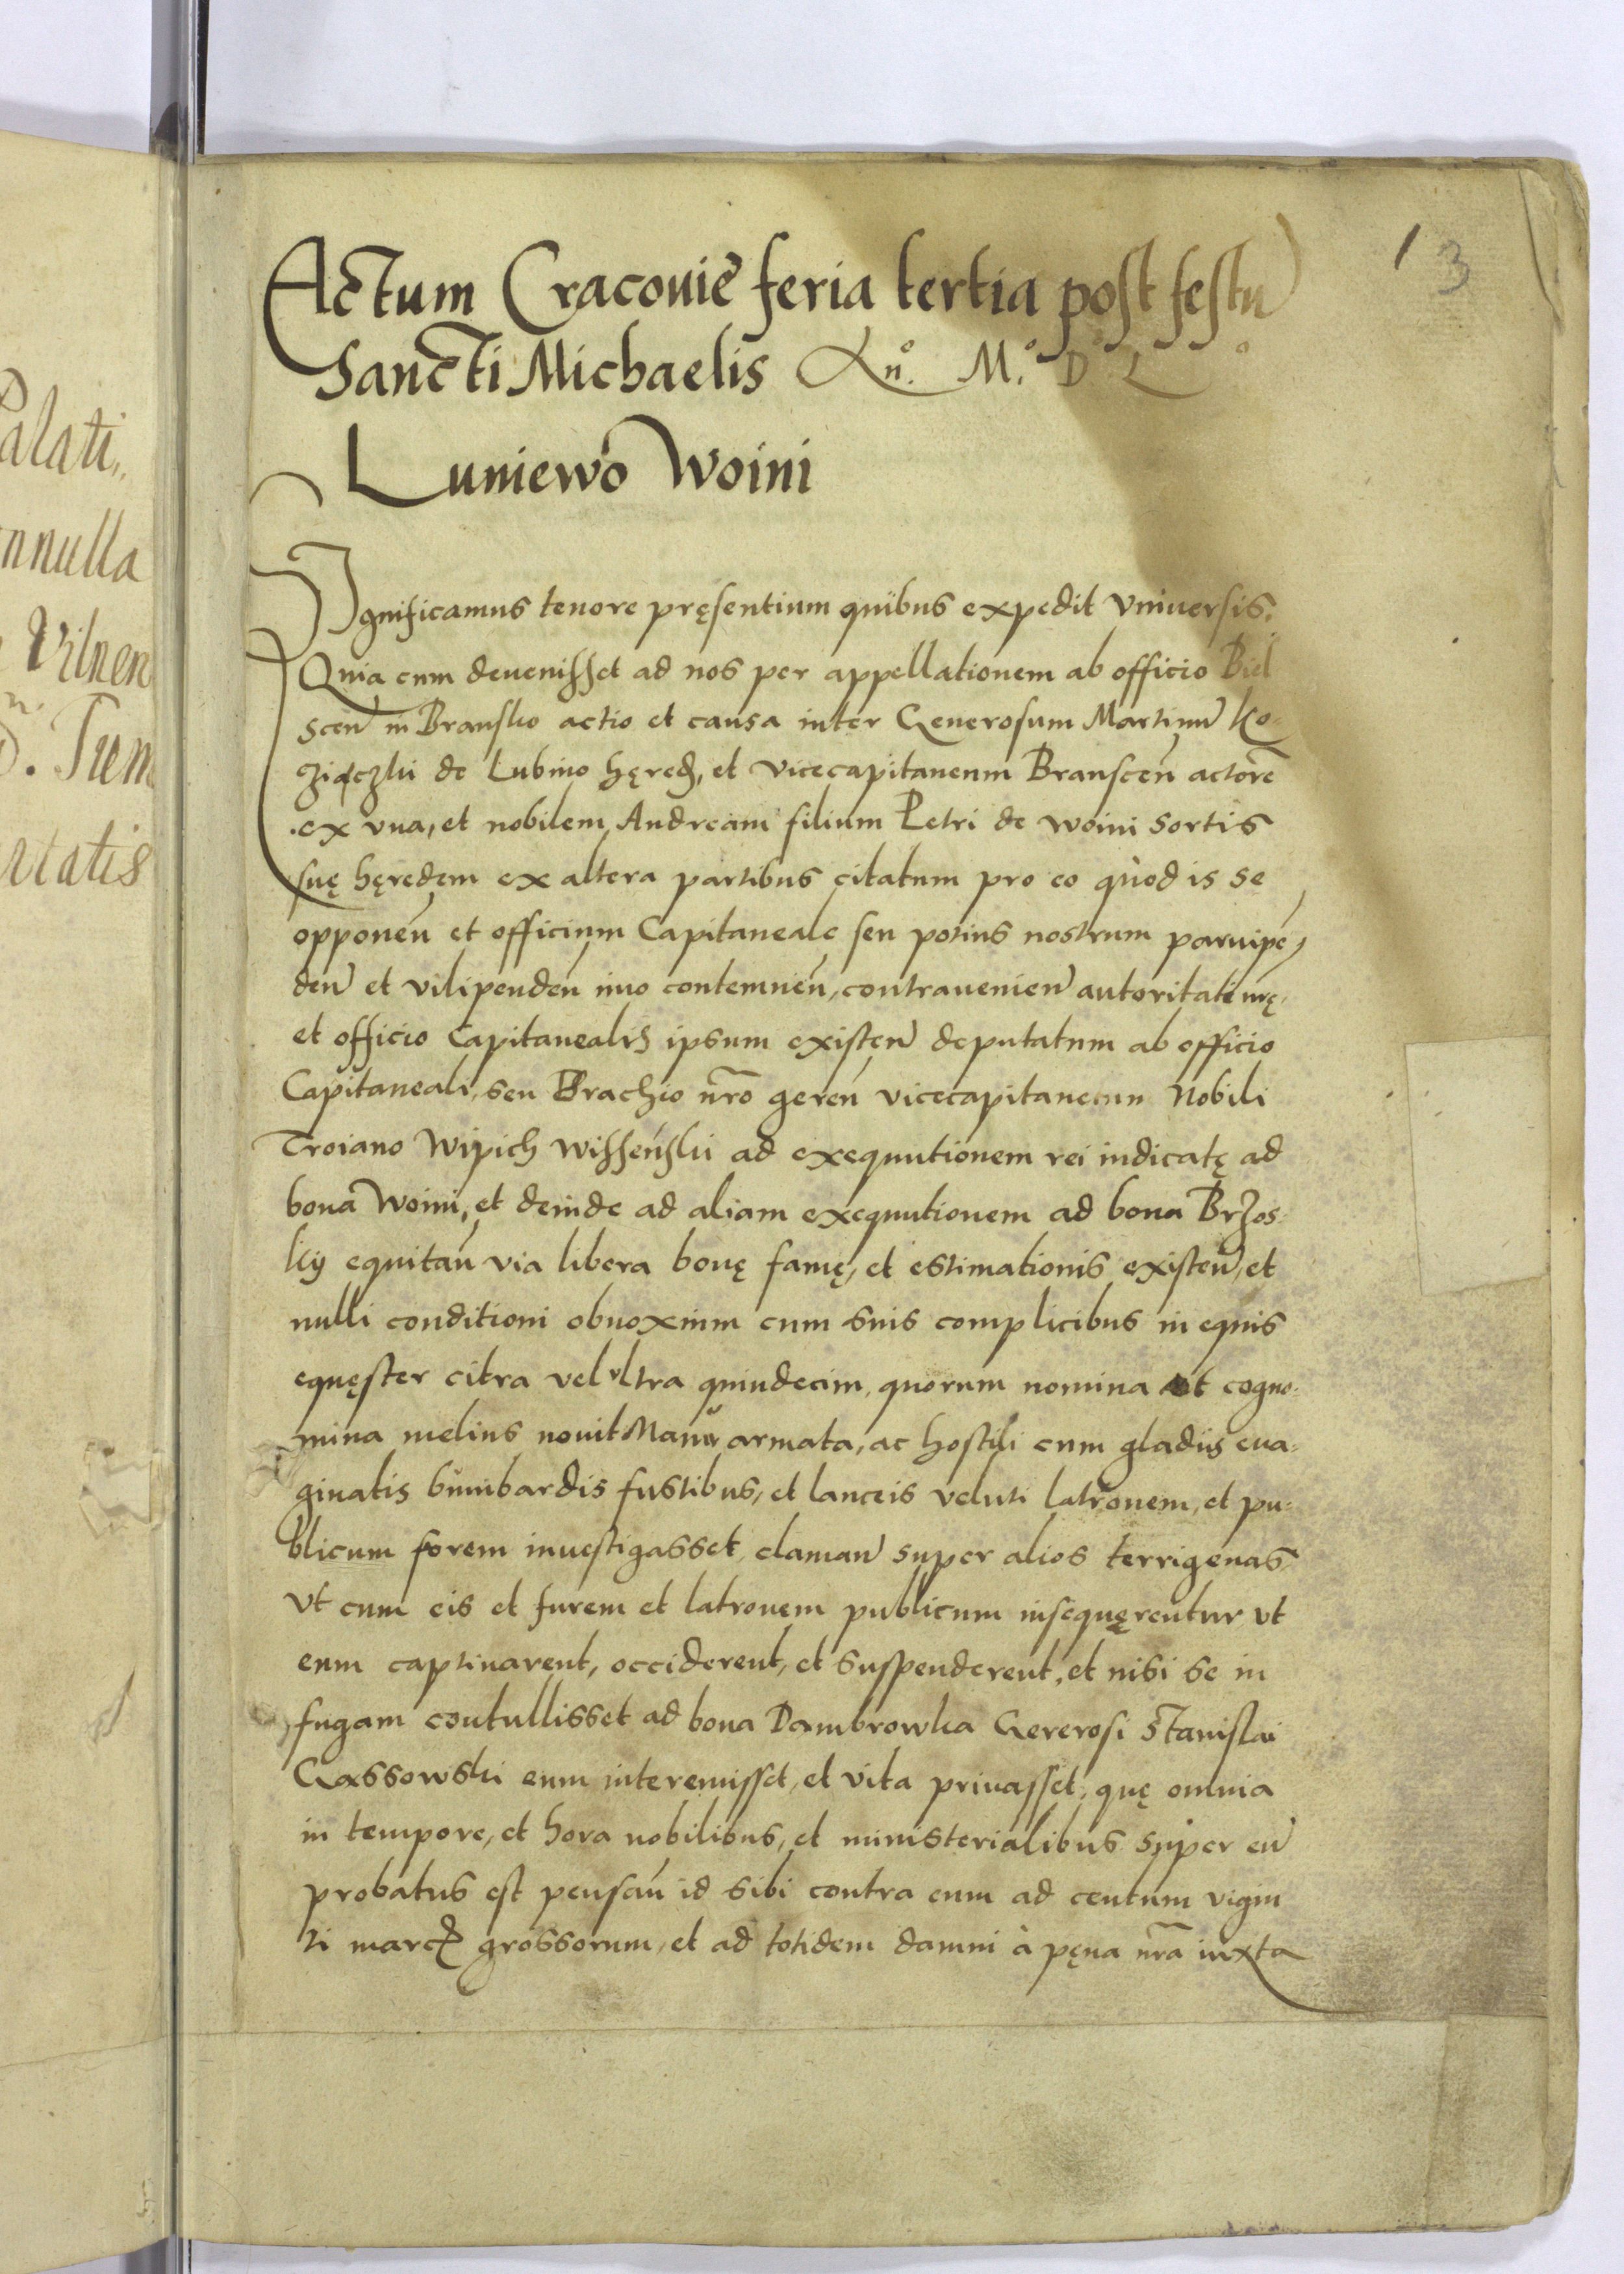 13
Actum Cracouię feria tertia post festu
Sancti Michaelis An.º M.º Dº Lº
Luniewo Woini
Significamus tenore pręsentium quibus expedit vniuersis.
Quia cum deuenisset ad nos per appellationem ab officio Biel
scen in Bransko actio et causa inter Generosum Martinu Ko-
ziączki de Lubino hęred, et vicecapitaneum Branscen actore
ex vna, et nobilem Andream filium Petri de Woini sortis
suę hęredem ex altera partibus citatum pro eo quod is se
opponen et officium Capitaneale seu potius nostrum paruipe
den et vilipenden imo contemnen, contrauenien autoritati nrę
et officio Capitanealis ipsum existen deputatum ab officio
Capitaneali, seu Brachio nro geren vicecapitaneum Nobili
Troiano Wipich Wissenski ad exequutionem rei iudicatę ad
bona Woini, et deinde ad aliam exequutionem ad bona Brzos-
kij equitan via libera bonę famę, et estimationis existen, et
nulli conditioni obnoxium cum suis complicibus in equis
equęster citra vel vltra quindecim, quorum nomina et cogno-
mina melius nouit Manu armata, ac hostili cum gladiis eua-
ginatis bumbardis fustibus, et lanceis veluti latronem, et pu-
blicum forem inuestigasset, claman super alios terrigenas
vt cum eis et furem et latronem publicum insequęrentur vt
eum captiuarent, occiderent, et suspenderent, et nisi se in
fugam contullisset ad bona Dambrowka Gererosi Stanislai
Gassowski eum interemisset, et vita priuasset, quę omnia
in tempore, et hora nobilibus, et ministerialibus super eu
probatus est pensan id sibi contra eum ad centum vigin
ti marc grossorum, et ad totidem damni à pęna nra iuxta
Palati,,
nnulla
Vilnen